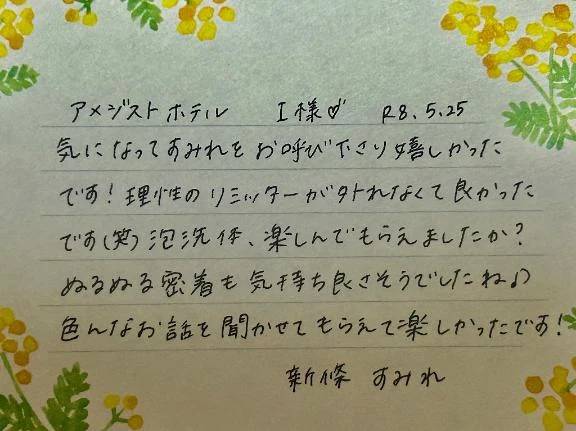 アメジストホテル I様♡ R8.5.25
気になってすみれをお呼び下さり嬉しかった
です！理性のリミッターが外れなくて良かった
です(笑)泡洗体、楽しんでもらえましたか？
ぬるぬる密着も気持ち良さそうでしたね♪
色んなお話を聞かせてもらえて楽しかったです！
新條 すみれ